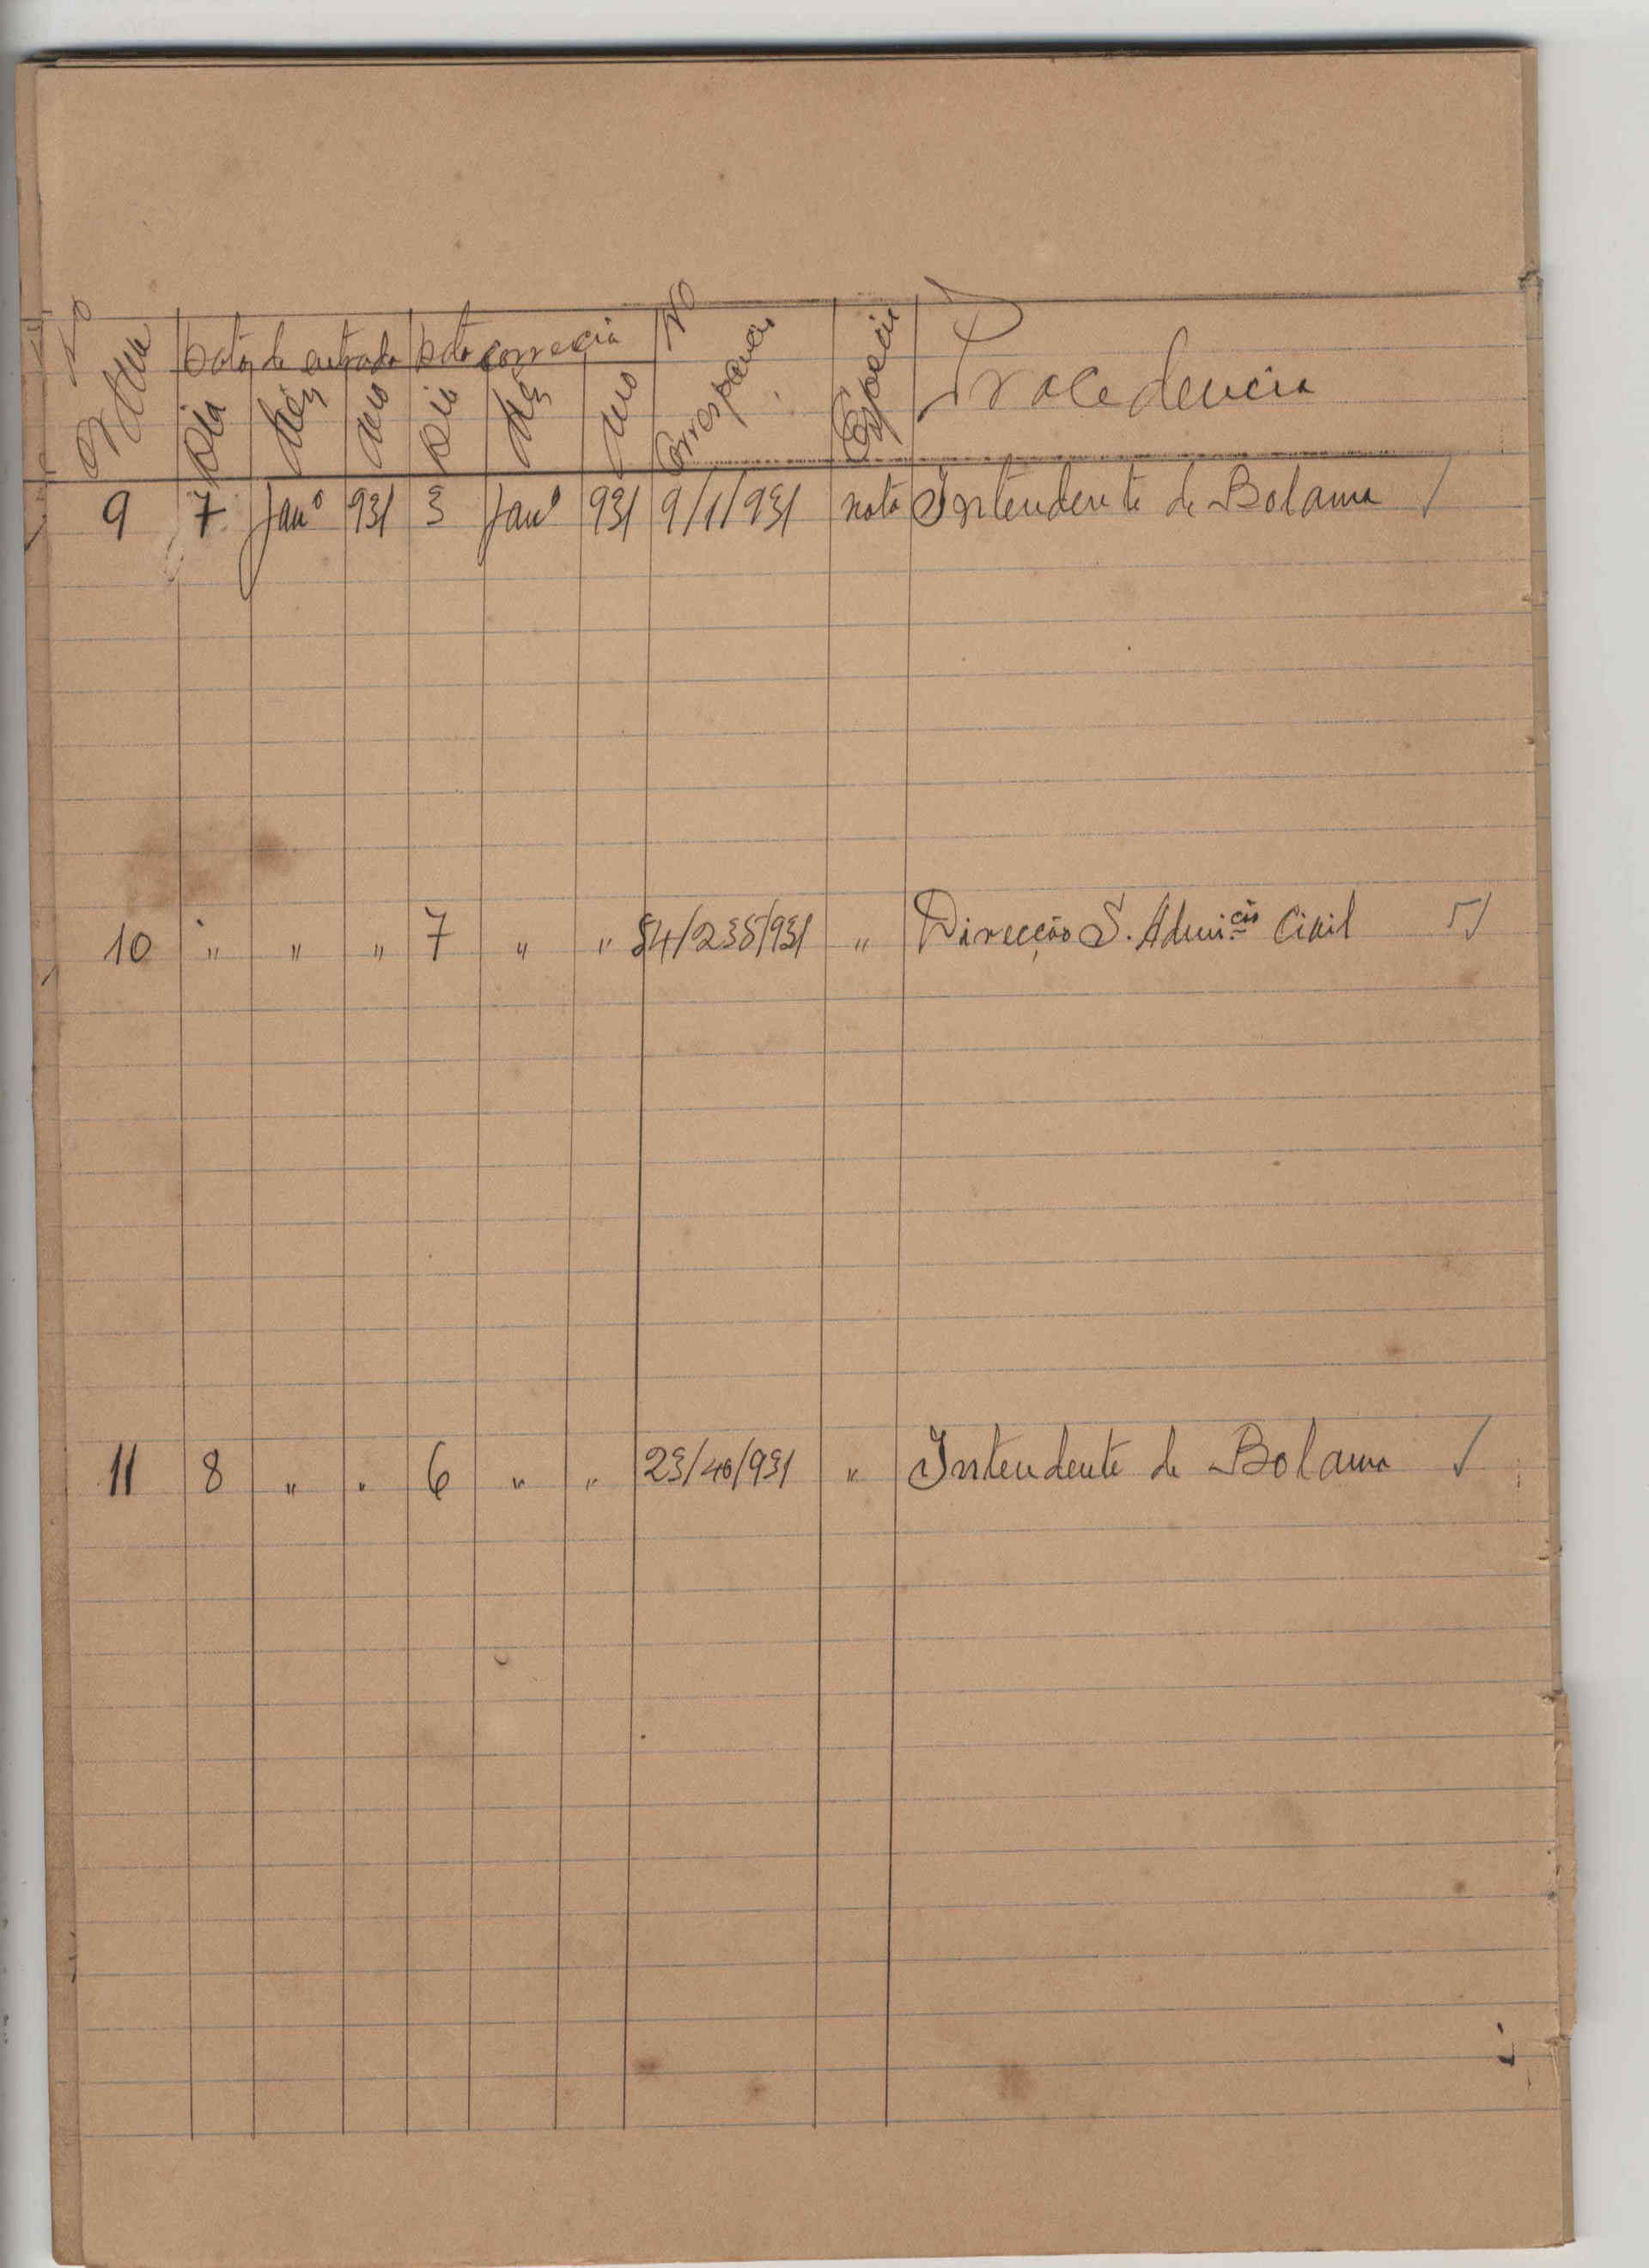 Nº Data de entrada Data correcia Nº
Dia Mês Ano Dia Mês Ano Correspencia Especie Procedencia
9 7 Janº 931 3 Janº 931 9/1/931 nota Intendente de Bolama
10 " " " 7 " " 84/235/931 " Direcção S. Admi.ção Civil
11 8 " " 6 " " 23/40/931 " Intendente de Bolama